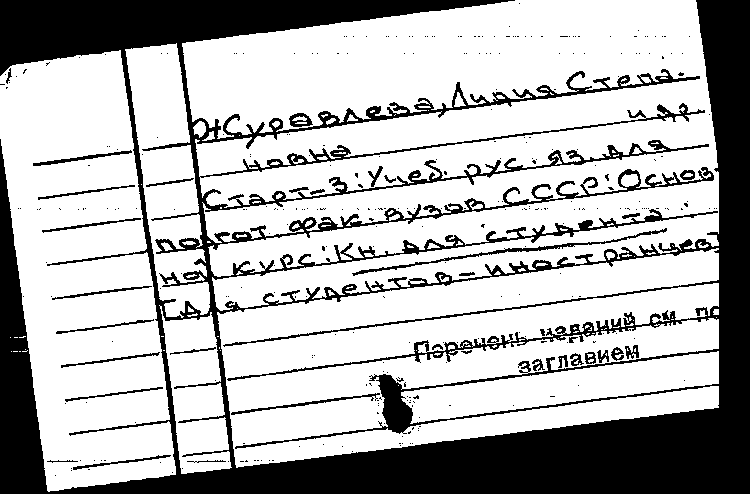 Журавлева, Лидия Степа-
новна и др.
Старт-3: Учеб. рус. яз. для
подгот. фак. вузов СССР: Основ-
ной курс: Кн. для студента :
[Для студентов-иностранцев]
Перечень изданий см. по
заглавием